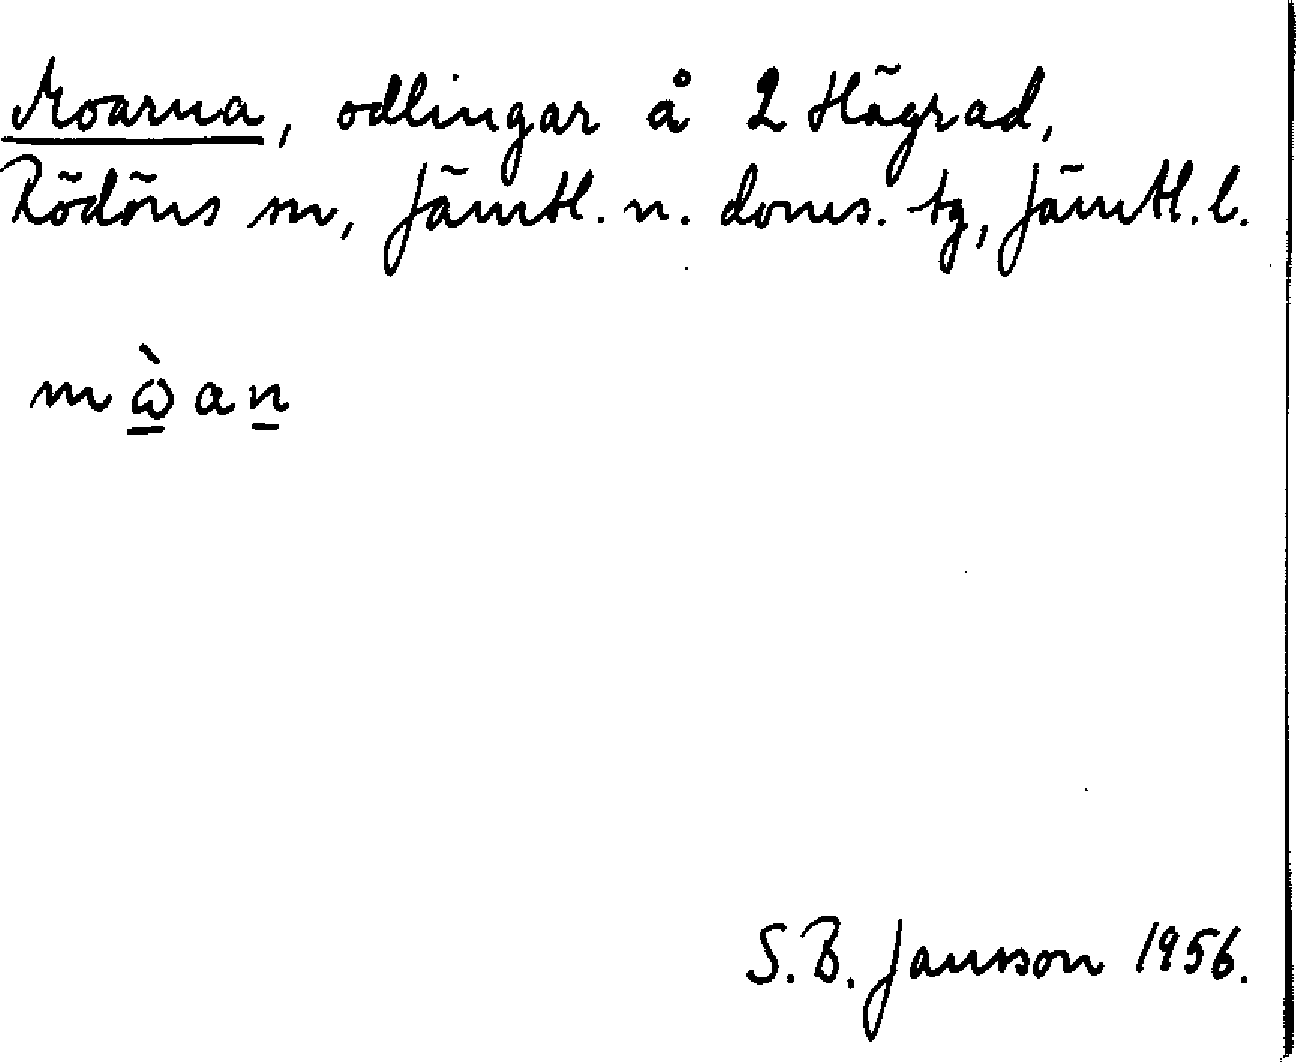 Moarna, odlingar å 2 Hägrad,
Rödöns sn, Jämtl. n. doms. tg, Jämtl. l.
mὼ̱an̲
S. B. Jansson 1956.